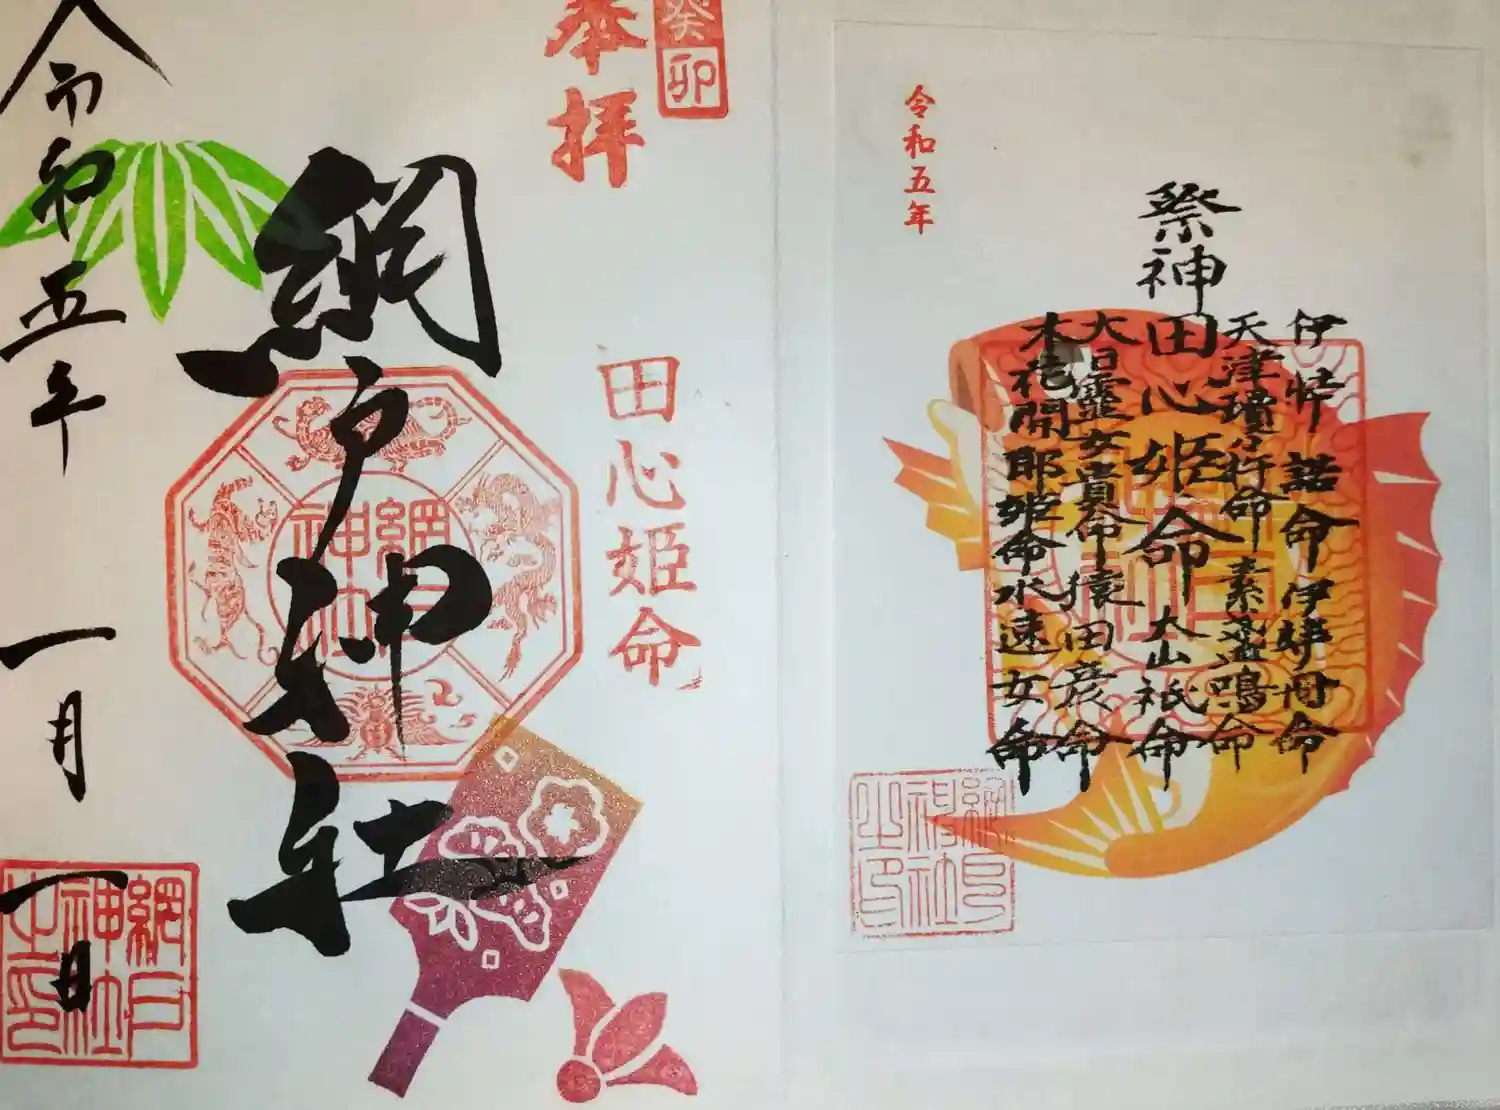 奉拝
癸卯
網戸神社
田心姫命
令和五年
一月一日
網戸神社
網戸神社之印
令和五年
祭神
伊弉諾命 伊弉冊命
天津瓊々杵命 素盞嗚命
田心姫命 大山祇命
大日靈女貴命 猿田彦命
木花開耶姫命 水速女命
網戸神社之印